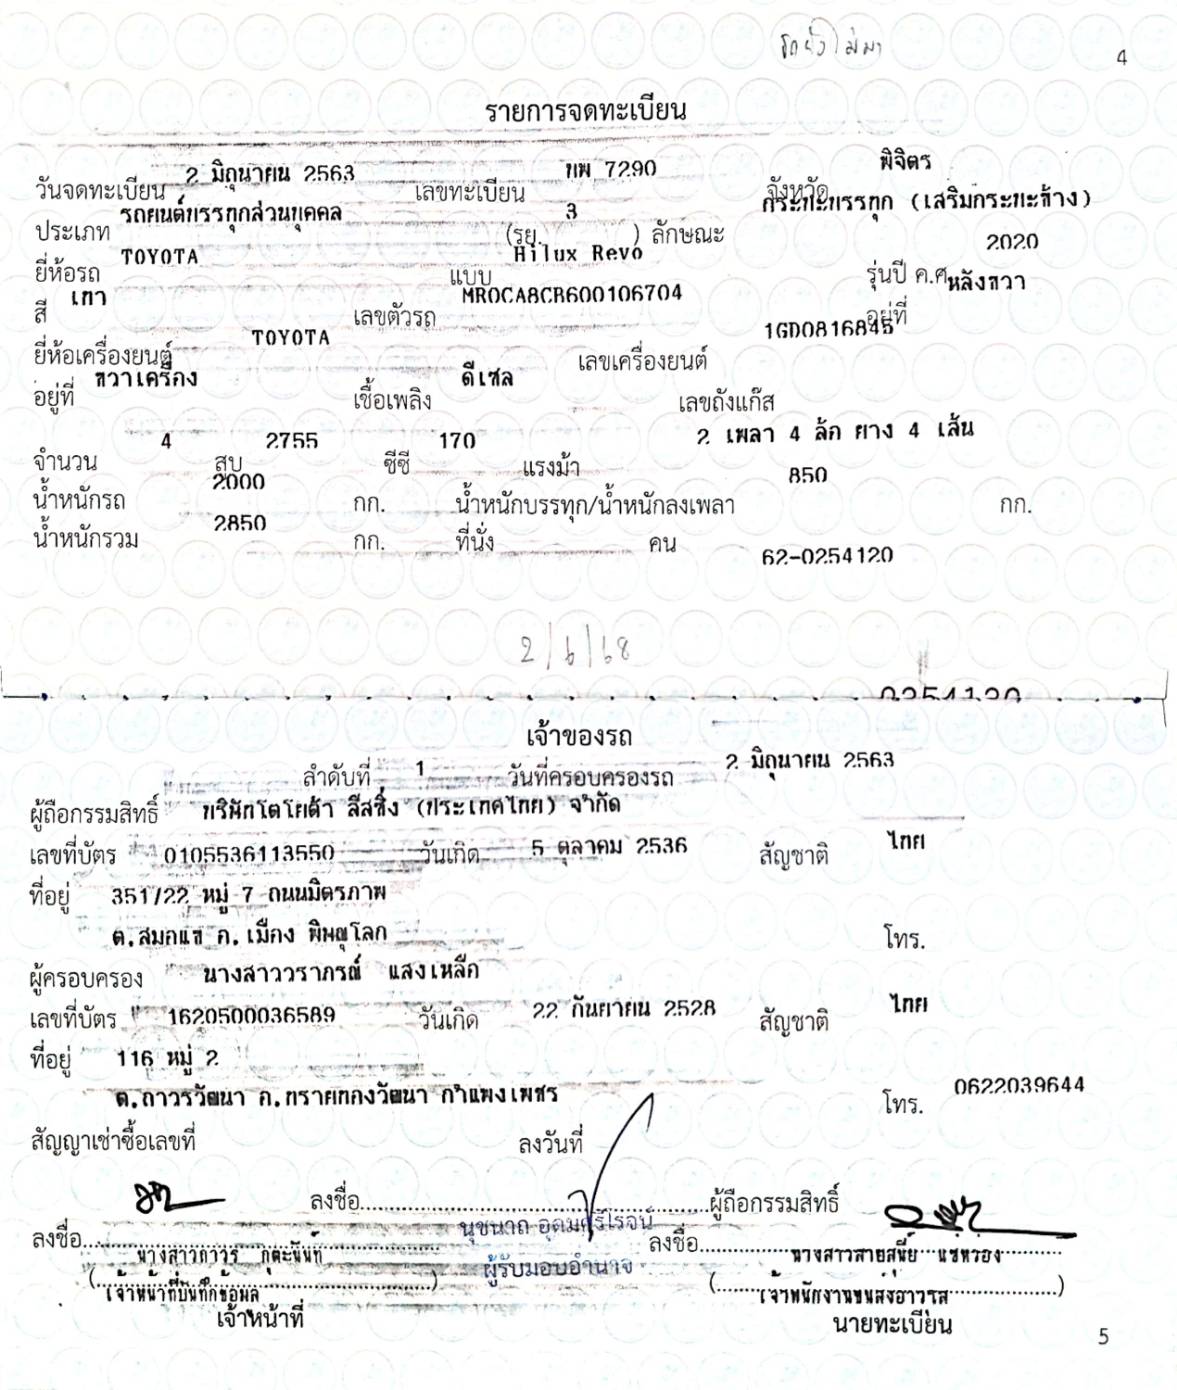 รถยังไม่มา
4
รายการจดทะเบียน
วันจดทะเบียน 2 มิถุนายน 2563 เลขทะเบียน บพ 7290 จังหวัด พิจิตร
ประเภท รถยนต์บรรทุกส่วนบุคคล (รย. 3 ) ลักษณะ กระบะบรรทุก (เสริมกระบะข้าง)
ยี่ห้อรถ TOYOTA แบบ Hilux Revo รุ่นปี ค.ศ. 2020
สี เทา เลขตัวรถ MR0CA8CB600106704 อยู่ที่ หลังขวา
ยี่ห้อเครื่องยนต์ TOYOTA เลขเครื่องยนต์ 1GD0816845
อยู่ที่ ขวาเครื่อง เชื้อเพลิง ดีเซล เลขถังแก๊ส
จำนวน 4 สูบ 2755 ซีซี 170 แรงม้า 2 เพลา 4 ล้อ ยาง 4 เส้น
น้ำหนักรถ 2000 กก. น้ำหนักบรรทุก/น้ำหนักลงเพลา 850 กก.
น้ำหนักรวม 2850 กก. ที่นั่ง คน
62-0254120
2/6/68
0254120
เจ้าของรถ
ลำดับที่ 1 วันที่ครอบครองรถ 2 มิถุนายน 2563
ผู้ถือกรรมสิทธิ์ บริษัทโตโยต้า ลีสซิ่ง (ประเทศไทย) จำกัด
เลขที่บัตร 0105536113550 วันเกิด 5 ตุลาคม 2536 สัญชาติ ไทย
ที่อยู่ 351/22 หมู่ 7 ถนนมิตรภาพ
ต.สมอแข อ.เมือง พิษณุโลก โทร.
ผู้ครอบครอง นางสาววราภรณ์ แสงเหลือ
เลขที่บัตร 1620500036589 วันเกิด 22 กันยายน 2528 สัญชาติ ไทย
ที่อยู่ 116 หมู่ 2
ต.ถาวรวัฒนา อ.ทรายทองวัฒนา กำแพงเพชร โทร. 0622039644
สัญญาเช่าซื้อเลขที่ ลงวันที่
ลงชื่อ ผู้ถือกรรมสิทธิ์
นุชนาถ อุดมศรีโรจน์
ผู้รับมอบอำนาจ
ลงชื่อ ลงชื่อ
นางสาวถาวร นางสาวสายสุนีย์
(เจ้าหน้าที่บันทึกข้อมูล) (เจ้าพนักงานขนส่งอาวุโส)
เจ้าหน้าที่ นายทะเบียน
5